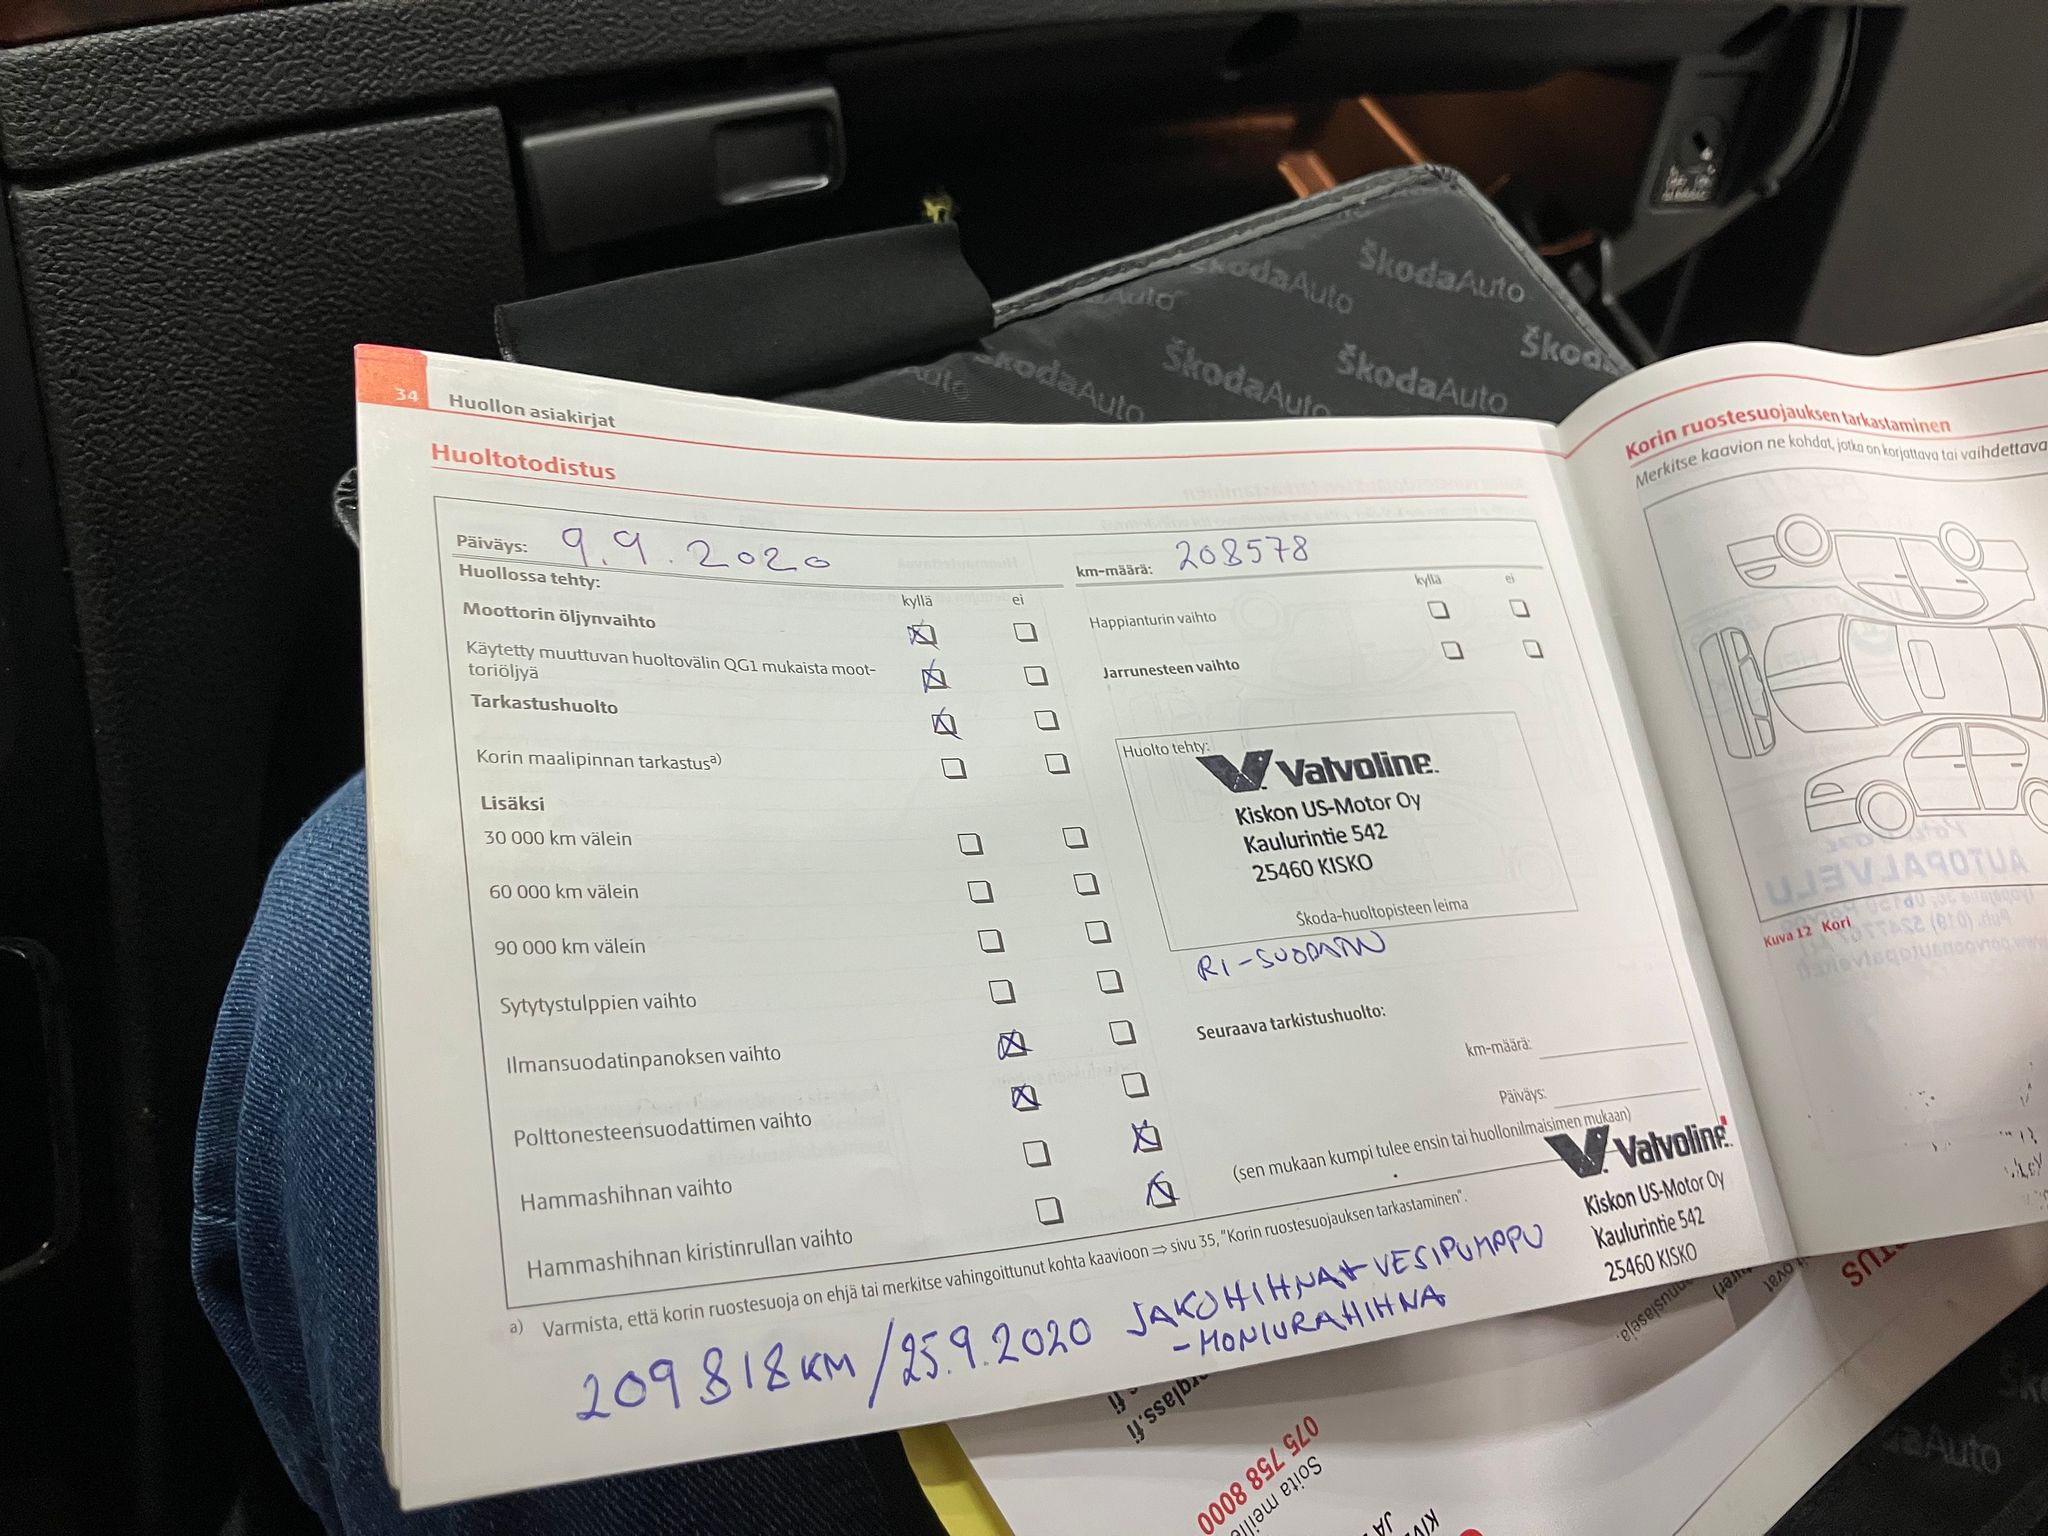 34 Huollon asiakirjat
Huoltotodistus
Päiväys: 9.9.2020
km-määrä: 208578
Huollossa tehty:
kyllä ei
Moottorin öljynvaihto
Käytetty muuttuvan huoltovälin QG1 mukaista moot-
toriöljyä
Tarkastushuolto
Korin maalipinnan tarkastusa)
Lisäksi
30 000 km välein
60 000 km välein
90 000 km välein
Sytytystulppien vaihto
Ilmansuodatinpanoksen vaihto
Polttonesteensuodattimen vaihto
Hammashihnan vaihto
Hammashihnan kiristinrullan vaihto
kyllä ei
Happianturin vaihto
Jarrunesteen vaihto
Huolto tehty:
Valvoline
Kiskon US-Motor Oy
Kaulurintie 542
25460 KISKO
Škoda-huoltopisteen leima
RI-SUODATIN
Seuraava tarkistushuolto:
km-määrä:
Päiväys:
(sen mukaan kumpi tulee ensin tai huollonilmaisimen mukaan)
Valvoline
Kiskon US-Motor Oy
Kaulurintie 542
25460 KISKO
a) Varmista, että korin ruostesuoja on ehjä tai merkitse vahingoittunut kohta kaavioon ⇒ sivu 35, "Korin ruostesuojauksen tarkastaminen".
209 818 KM / 25.9.2020 JAKOHIHNA + VESIPUMPPU
- MONIURAHIHNA
Korin ruostesuojauksen tarkastaminen
Merkitse kaavion ne kohdat, jotka on korjattava tai vaihdettava
Kuva 12 Kori
AUTOPALVELU
ŠkodaAuto
ŠkodaAuto
ŠkodaAuto
ŠkodaAuto
ŠkodaAuto
075 758 8000
Soita meille